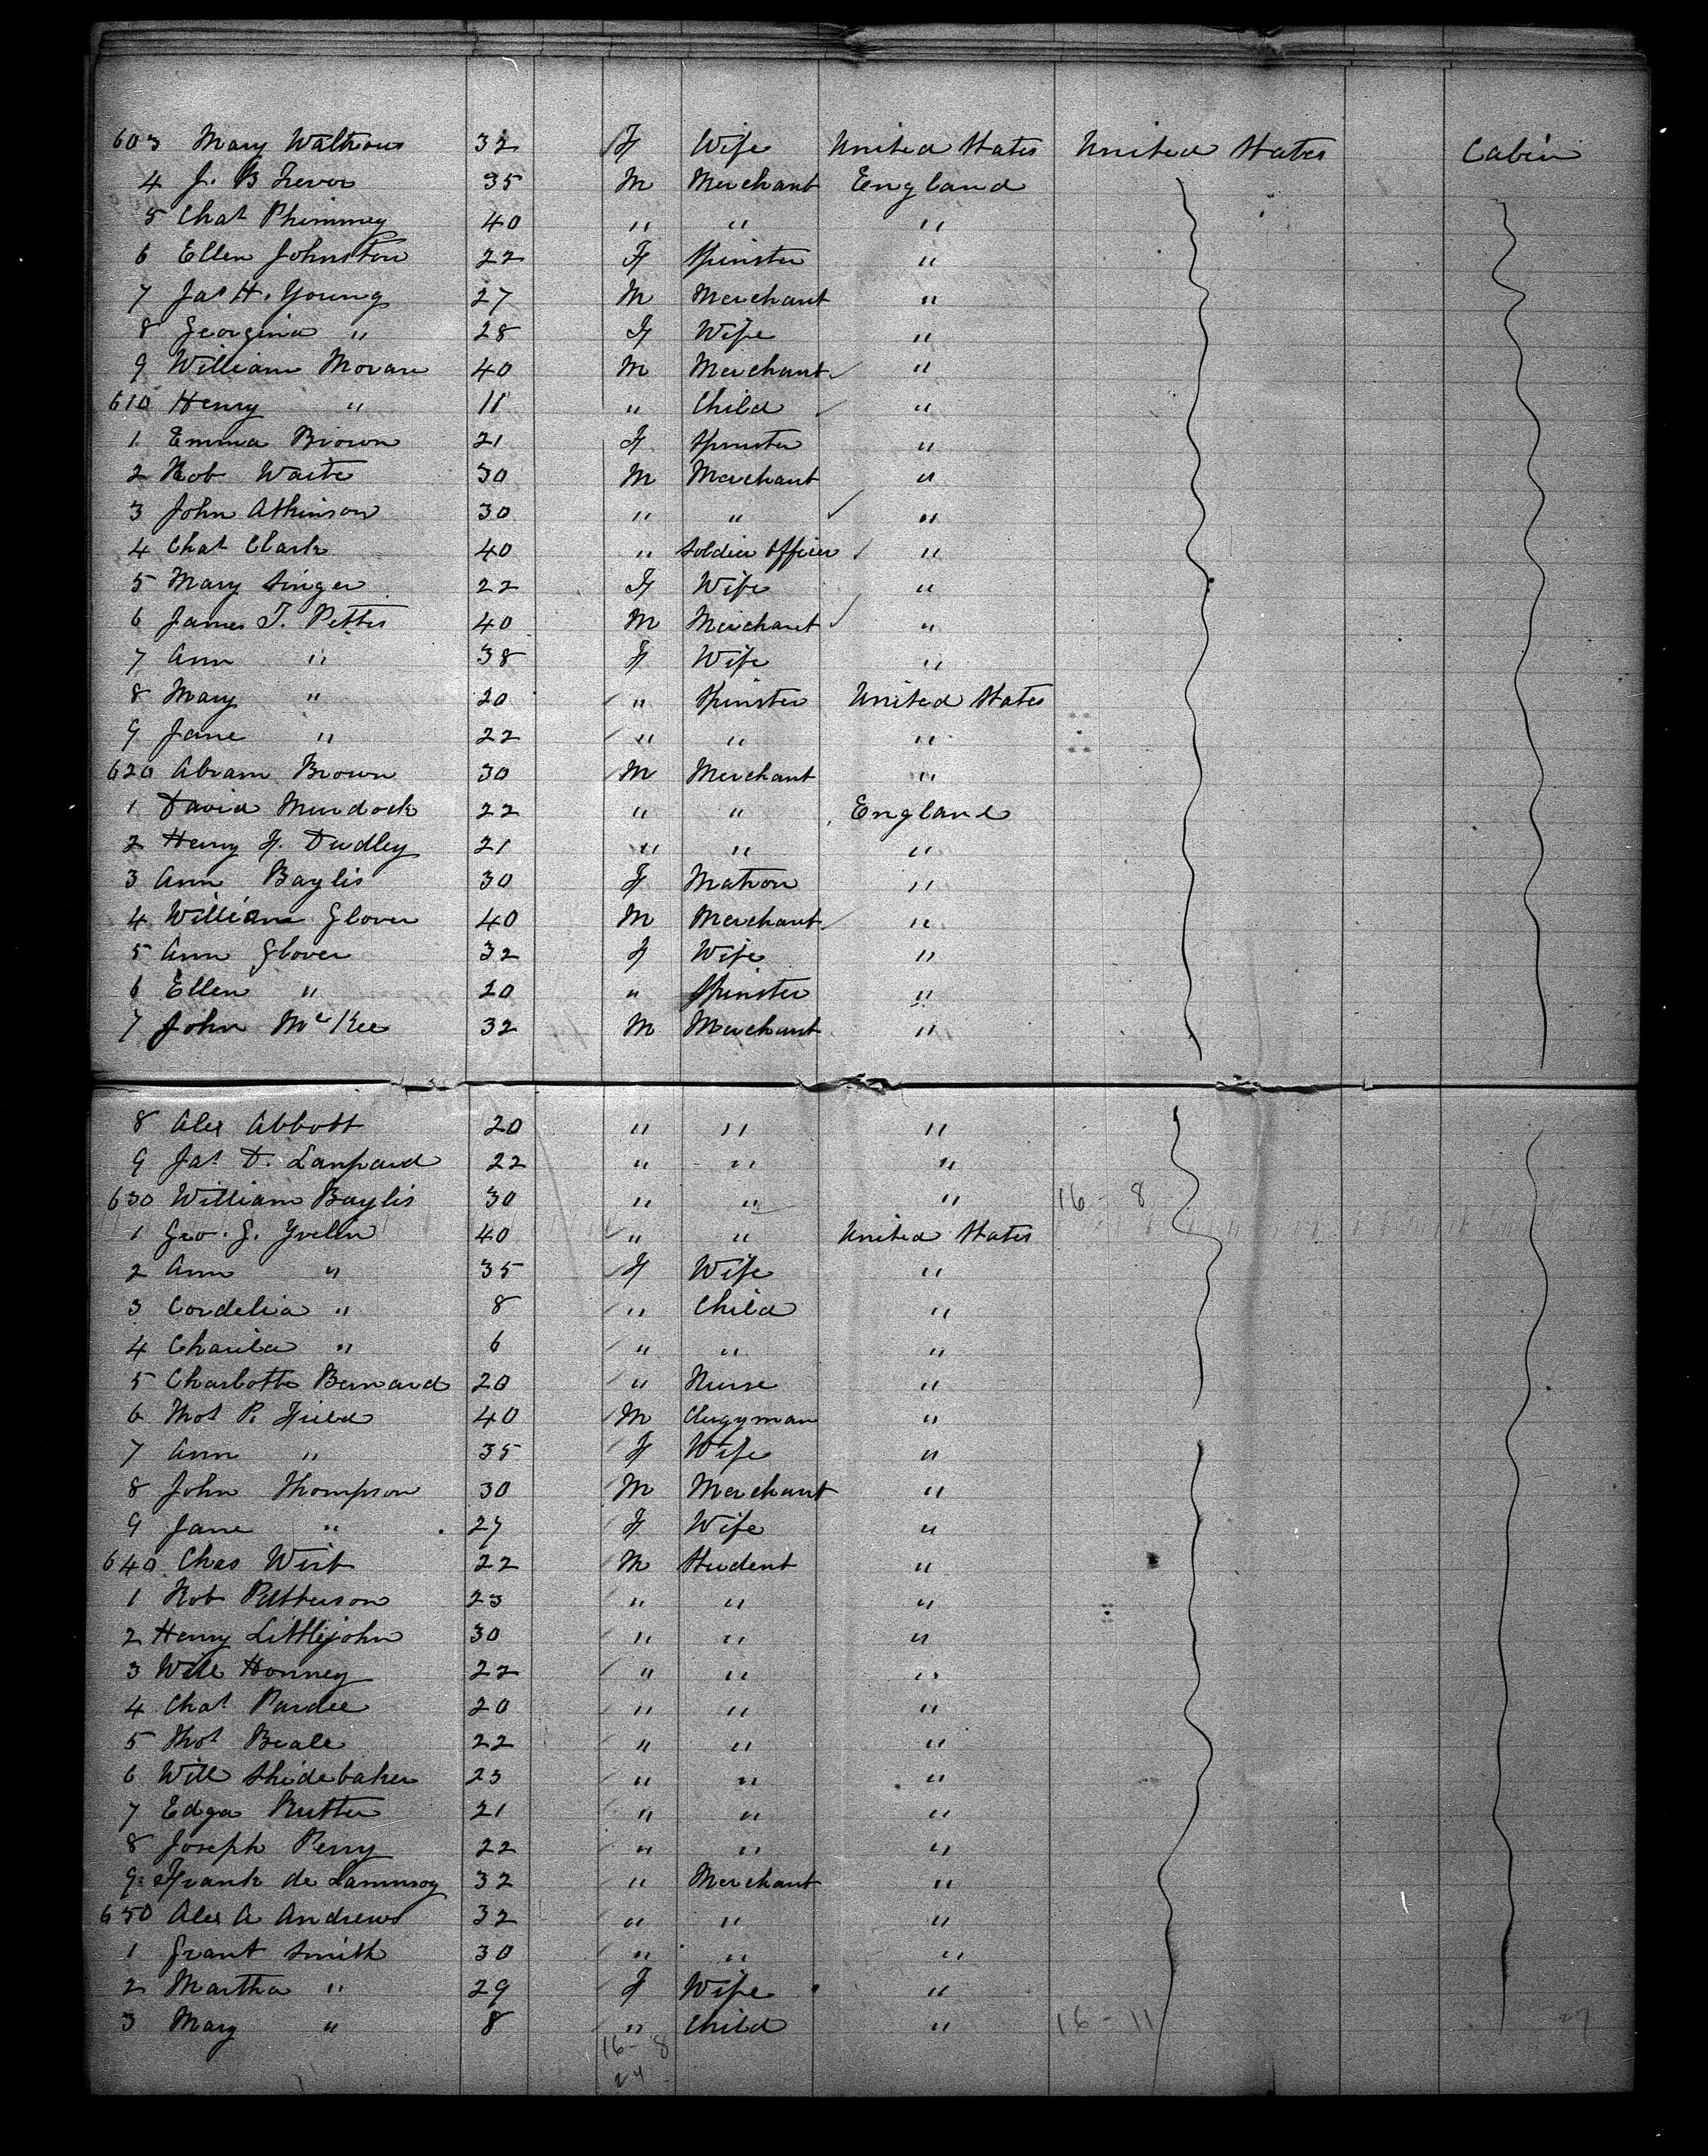 603 Mary Wathous 32 F Wife United States United States Cabin
4 J. B Trevor 35 M Merchant England
5 Chas Phinney 40 " " "
6 Ellen Johnston 22 F Spinster "
7 Jas H. Young 27 M Merchant "
8 Georgina " 28 F Wife "
9 William Moran 40 M Merchant "
610 Henry " 11 " Child "
1 Emma Brown 21 F Spinster "
2 Rob Waite 30 M Merchant "
3 John Atkinson 30 " " "
4 Chas Clark 40 " Soldier Officer "
5 Mary Singer 22 F Wife "
6 James T. Pettis 40 M Merchant "
7 Ann " 38 F Wife "
8 Mary " 20 " Spinster United States
9 Jane " 22 " " "
620 Abram Brown 30 M Merchant "
1 David Murdock 22 " " England
2 Henry F. Dudley 21 " " "
3 Ann Baylis 30 F Matron "
4 William Glover 40 M Merchant "
5 Ann Glover 32 F Wife "
6 Ellen " 20 " Spinster "
7 John McKee 32 M Merchant "
8 Alex Abbott 20 " " "
9 Jas D. Lanpard 22 " " "
630 William Baylis 30 " " " 16 - 8
1 Geo. G. Yvelin 40 " " United States
2 Ann " 35 F Wife "
3 Cordelia " 8 " Child "
4 " 6 " " "
5 Charlotte Bernard 20 " Nurse "
6 Thos P. Field 40 M Clergyman "
7 Ann " 35 F Wife "
8 John Thompson 30 M Merchant "
9 Jane " 27 F Wife "
640 Chas Wirt 22 M Student "
1 Rob Patterson 23 " " "
2 Henry Littlejohn 30 " " "
3 Will Honney 22 " " "
4 Chas Pardee 20 " " "
5 Thos Beale 22 " " "
6 Will Studebaker 23 " " "
7 Edga Rutter 21 " " "
8 Joseph Perry 22 " " "
9 Frank de Lannroy 32 " Merchant "
650 Alex A Andrews 32 " " "
1 Grant Smith 30 " " "
2 Martha " 29 F Wife "
3 Mary " 8 " Child " 16 - 11
16 - 8
24